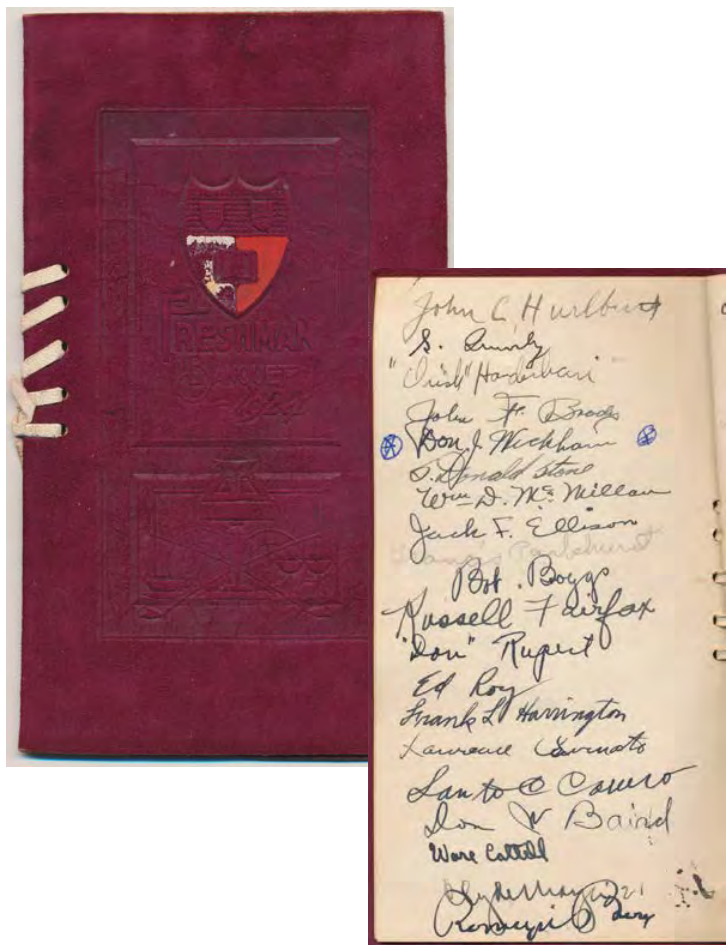 FRESHMAN
BANQUET
John C. Hurlburt
S.
"Irish"
John F. Brods
Don J. Wickham
S. Donald Stone
Wm D. McMillan
Jack F. Ellison
Parkhurst
Bob Boggs
Russell Fairfax
"Don" Rupert
Ed Roy
Frank L Harrington
Lawrence
Santo C Caruso
Don W Baird
Ware Cattell